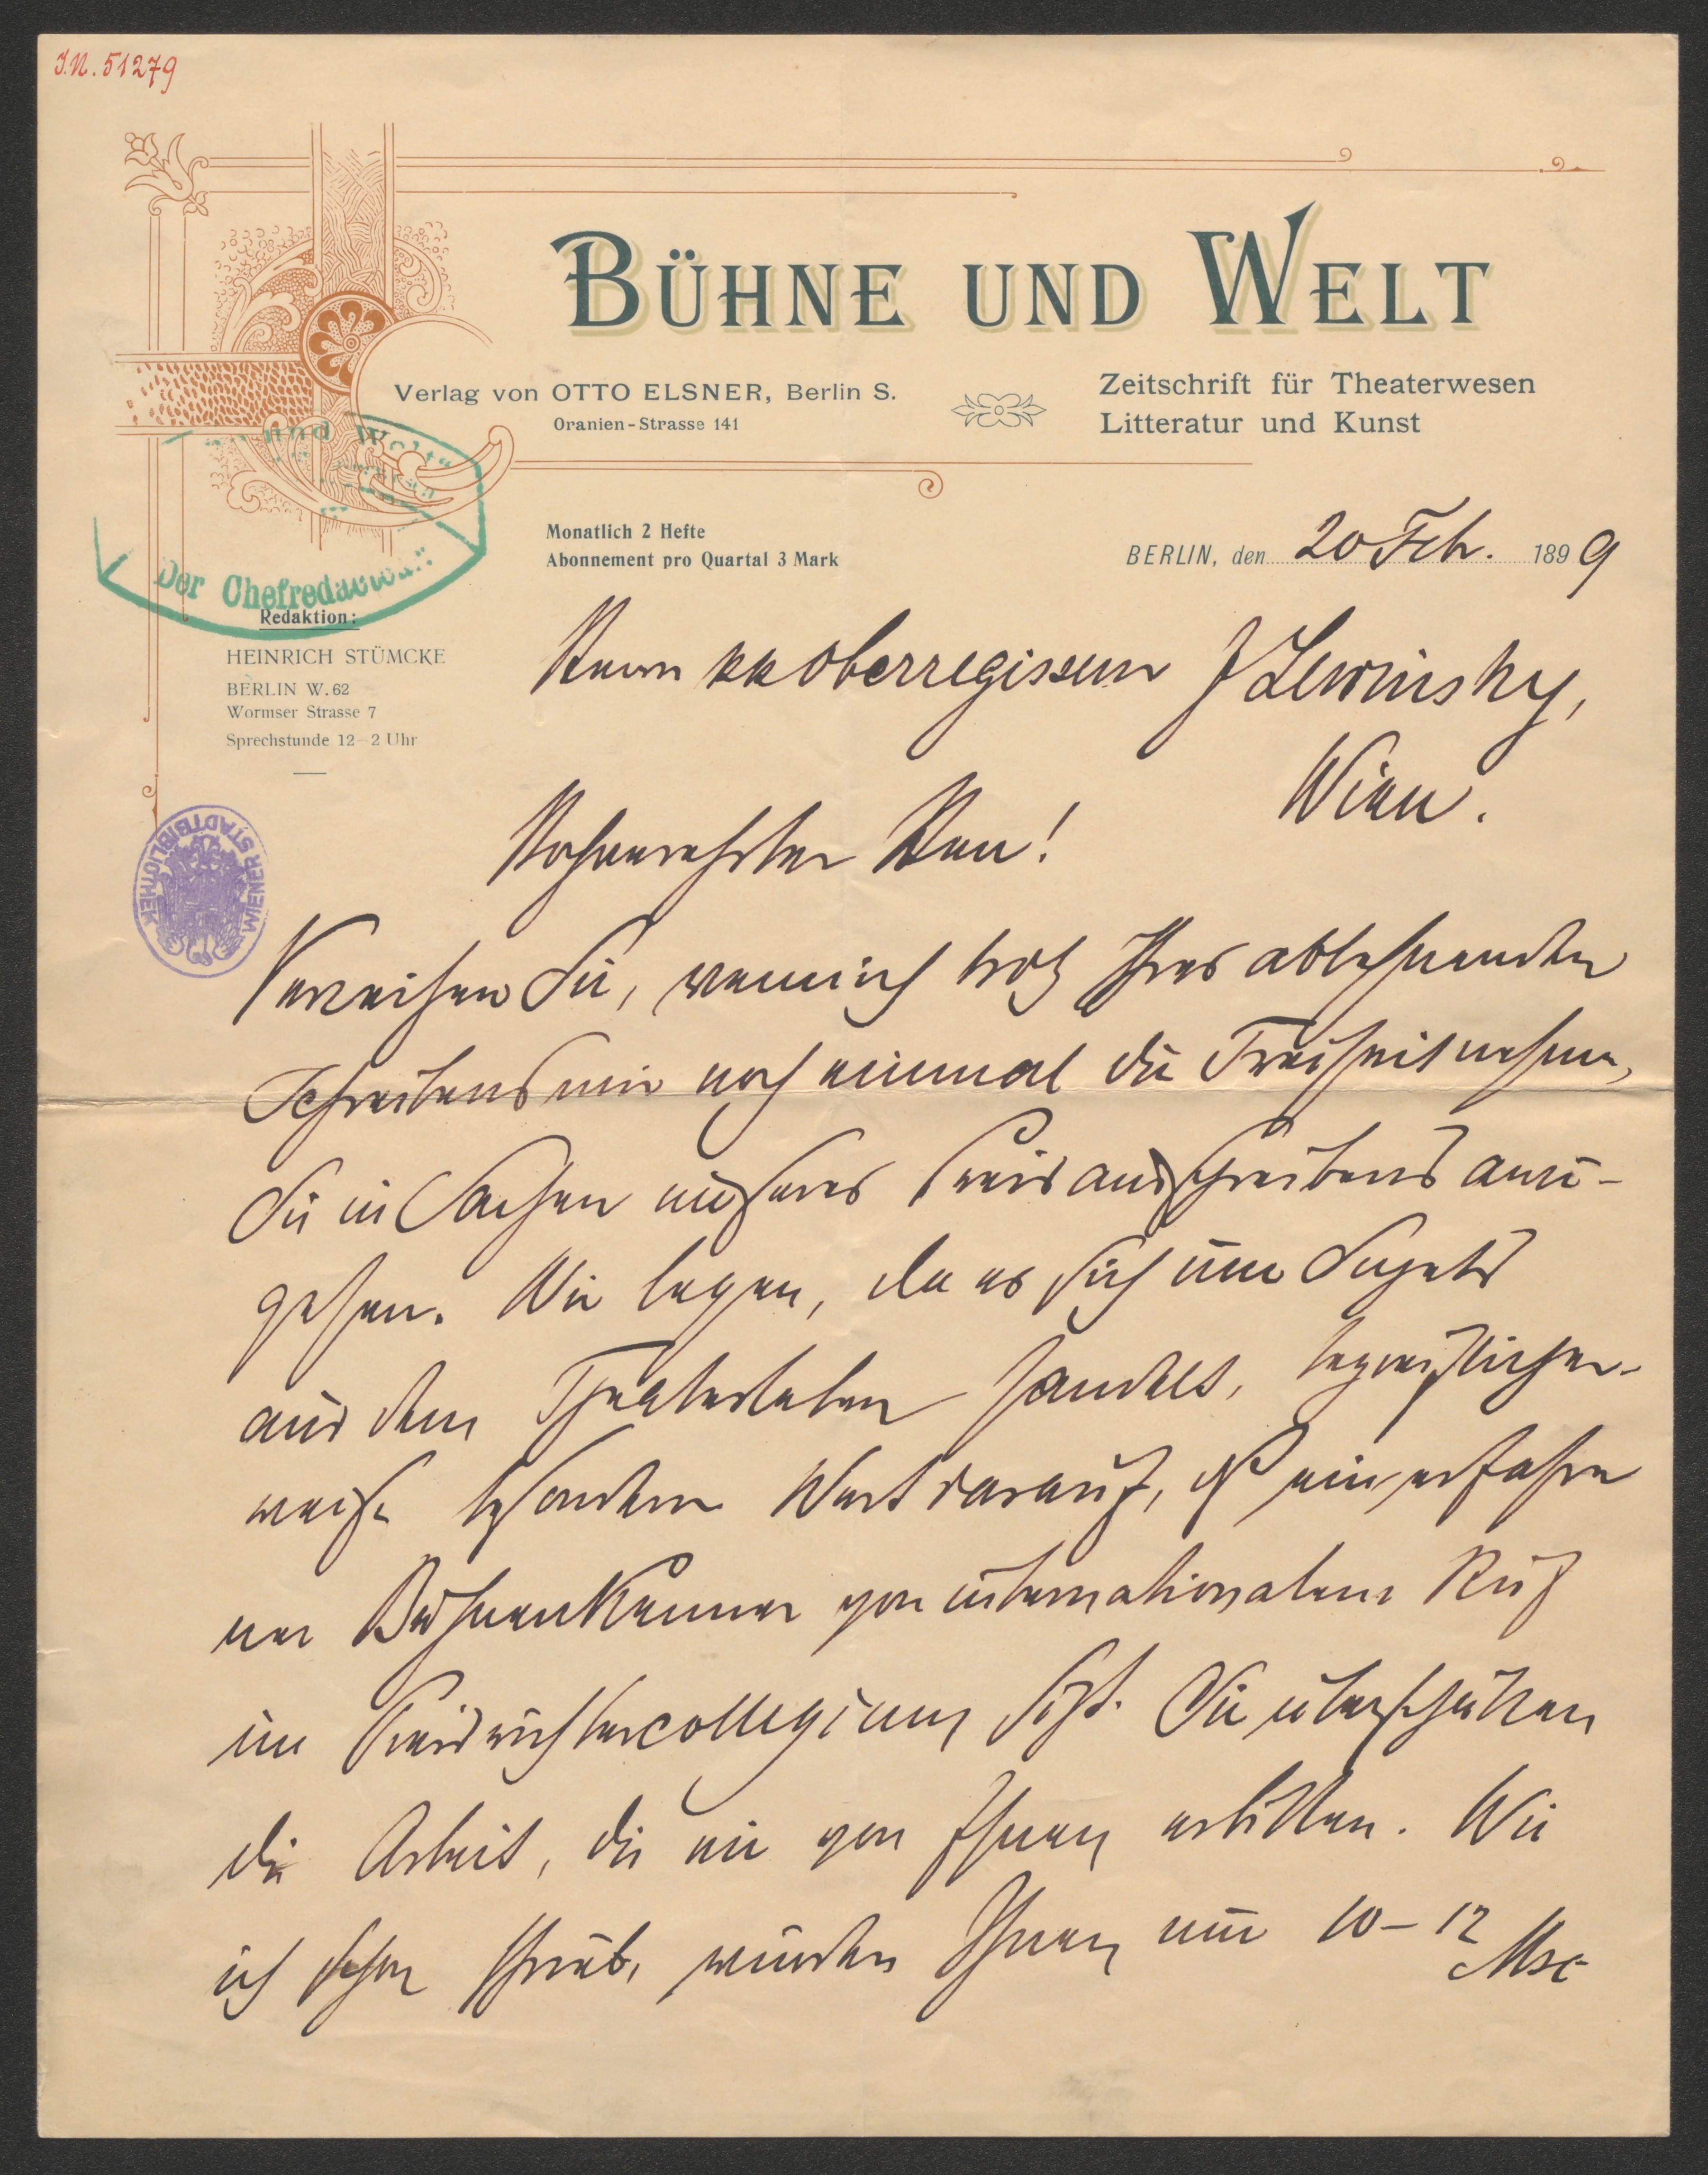 J.N. 51279
BÜHNE UND WELT
Verlag von OTTO ELSNER, Berlin S.
Oranien-Strasse 141
Zeitschrift für Theaterwesen
Litteratur und Kunst
und Welt"
Der Chefredacteur:
Monatlich 2 Hefte
Abonnement pro Quartal 3 Mark
BERLIN, den 20 Feb. 1899
Redaktion:
HEINRICH STÜMCKE
BERLIN W. 62
Wormser Strasse 7
Sprechstunde 12–2 Uhr
WIENER STADTBIBLIOTHEK
Herrn kk Oberregisseur J Lewinsky,
Wien.
Hochverehrter Herr!
Verzeihen Sie, wenn ich trotz Ihres ablehnenden
Schreibens mir noch einmal die Freiheit nehme,
Sie in Sachen unseres Preisausschreibens anzu-
gehen. Wir legen, da es sich um Sujets
aus dem Theaterleben handelt, begreiflicher-
weise besonderen Wert darauf, daß ein erfahre
ner Bühnenkenner von internationalem Ruf
im Preisrichtercollegium sitzt. Sie überschätzen
die Arbeit, die wir von Ihnen erbitten. Wie
ich schon schrieb, würden Ihnen nur 10–12
Msc